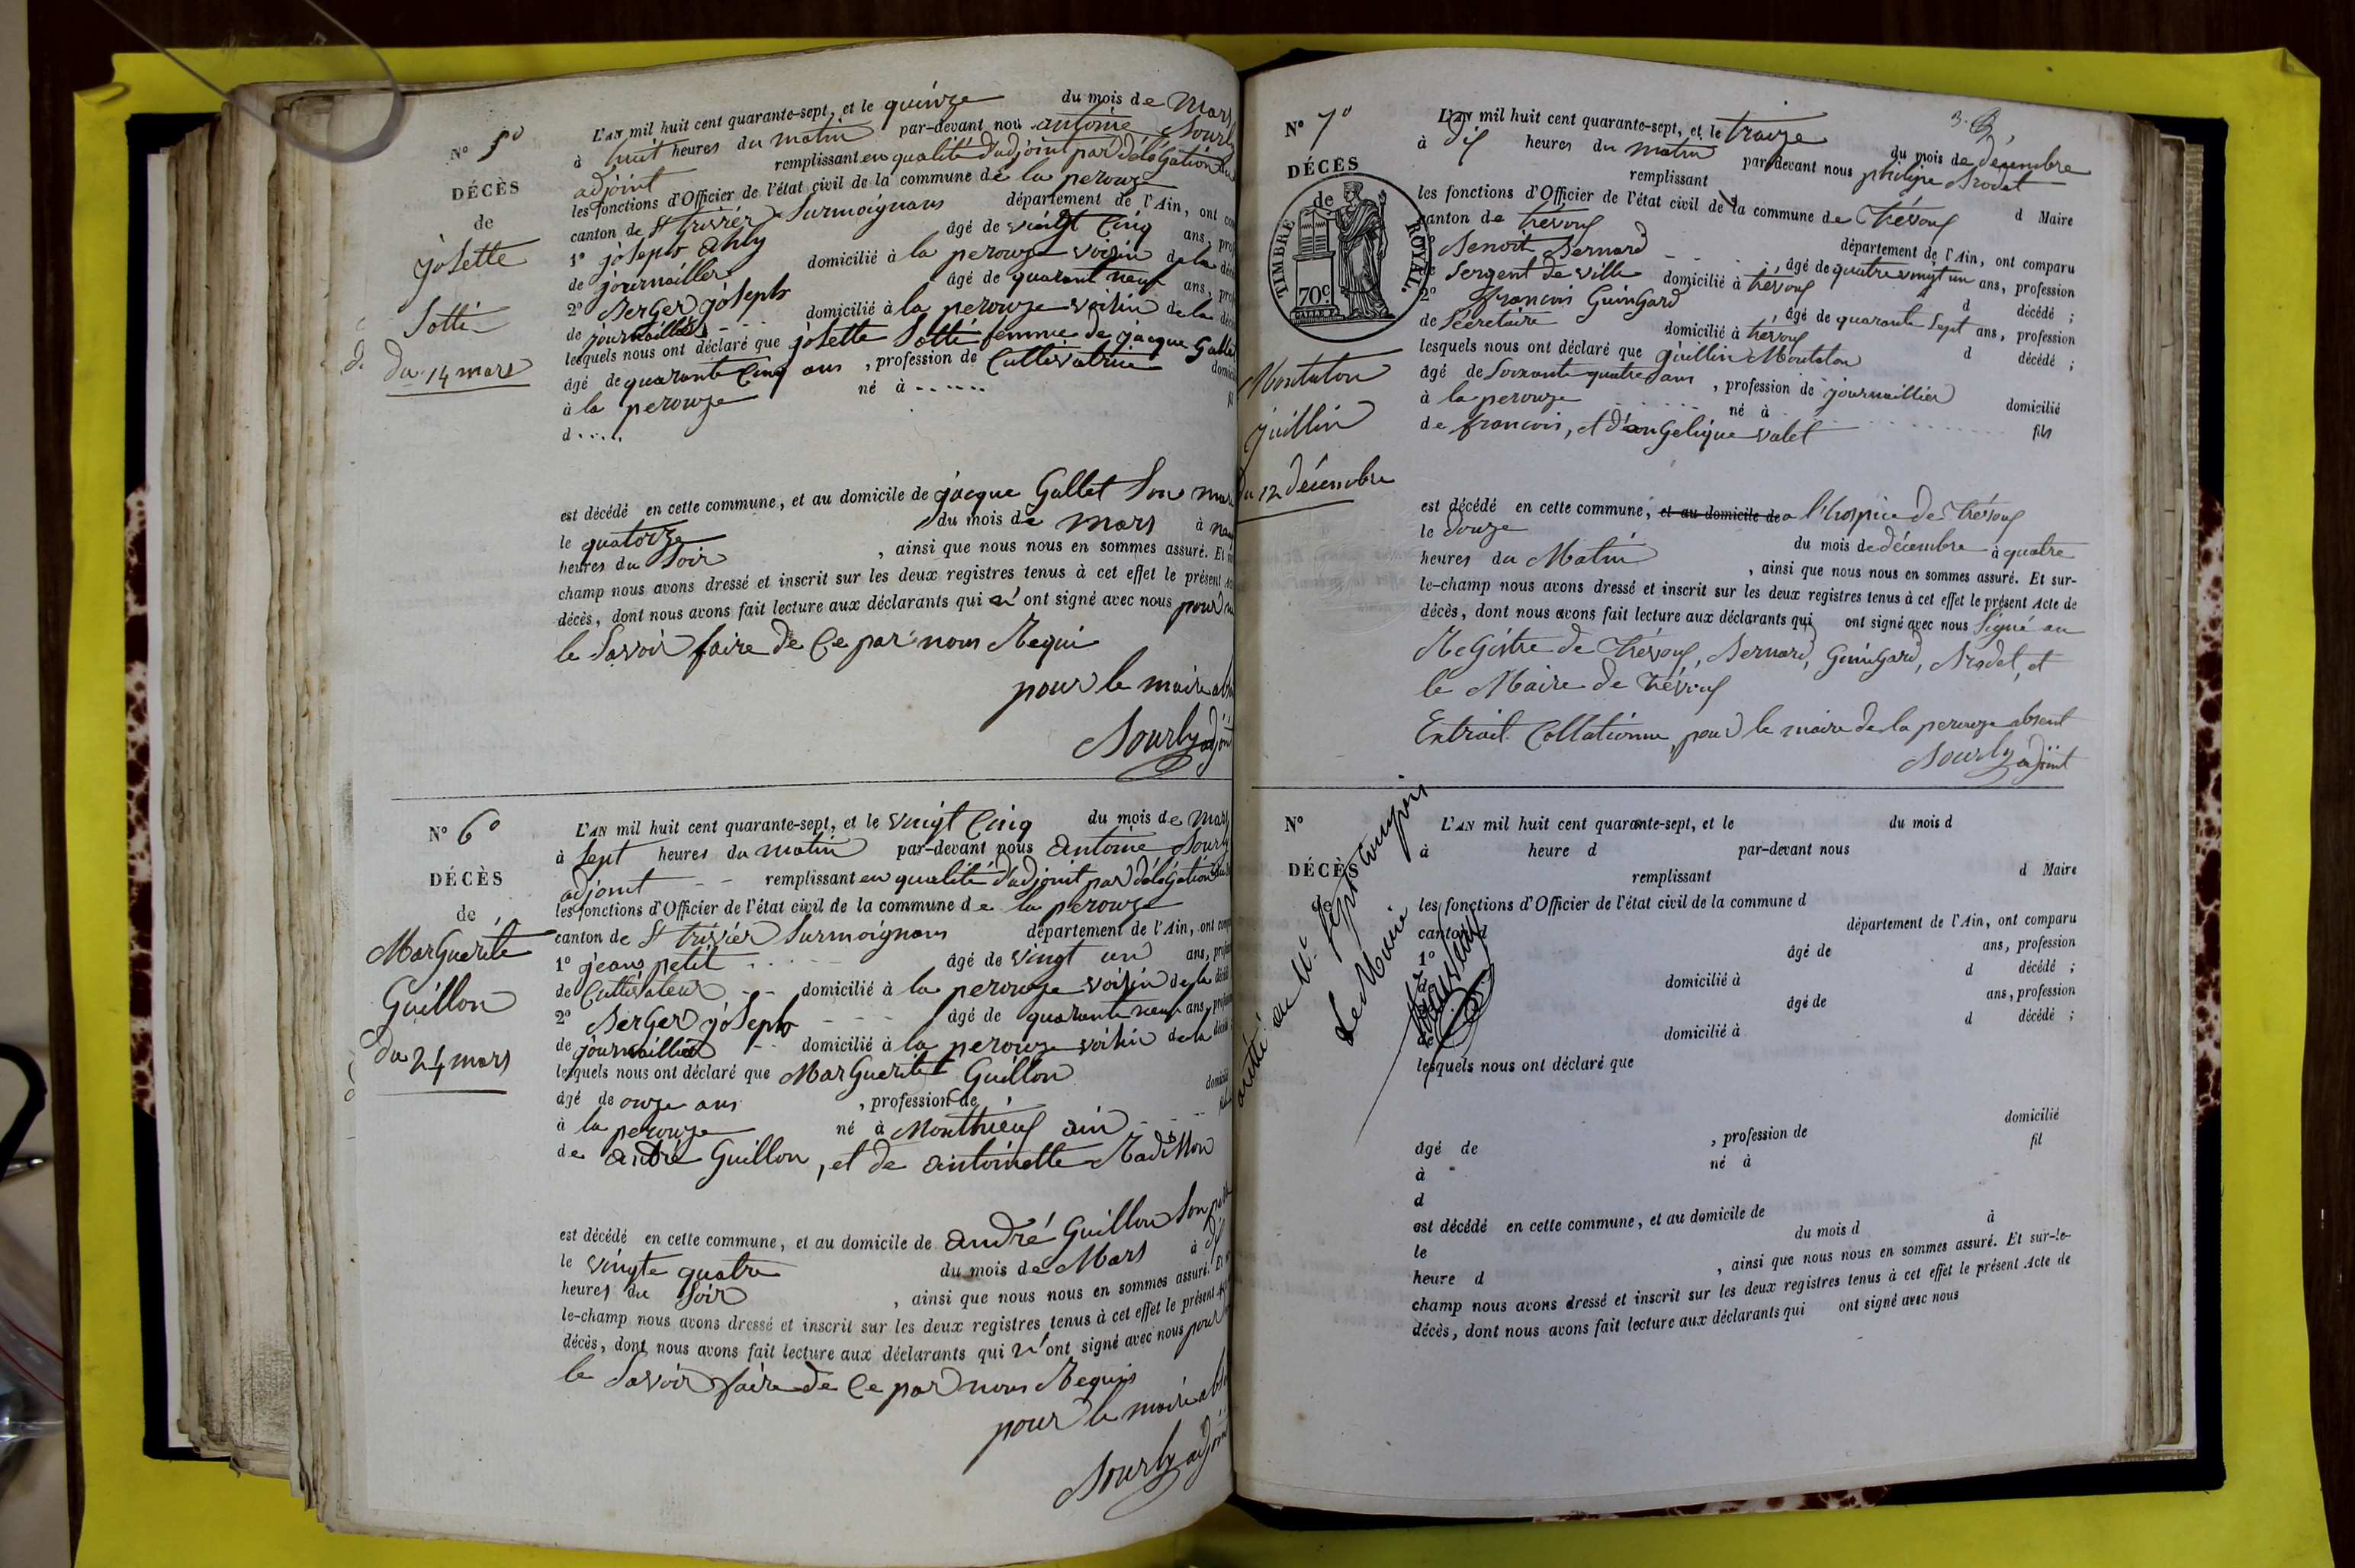 N° 5°
DÉCÈS
de
joSette
Sotti
du 14 mars
L'AN mil huit cent quarante-sept, et le quinze du mois de Mars
à huit heures du matin par-devant nou antoine Sourly
adjoint remplissant en qualité d'adjoint par délégation du
les fonctions d'Officier de l'état civil de la commune de la perouze
canton de St trivier Surmoignans département de l'Ain, ont com
1° joSeph âgé de vingt Cinq ans, pro
de journaillier domicilié à la perouze voisin de la déc
2° BerGer joSeph âgé de quarant neuf ans, prof
de journaillier domicilié à la perouze voisin de la déc
lesquels nous ont déclaré que joSette Sotti femme de jacque Gallet
âgé de quarante Cinq ans , profession de Cultivatrice domicil
à la perouze né à ...... fil
d.....
est décédé en cette commune, et au domicile de jacque Gallet Son mari
le quatorze du mois de mars à neuf
heures du Soir , ainsi que nous nous en sommes assuré. Et sur
champ nous avons dressé et inscrit sur les deux registres tenus à cet effet le présent Ac
décès, dont nous avons fait lecture aux déclarants qui n'ont signé avec nous pour ne
le Savoir faire de Ce par nous Requi
pour le maire abs
Sourly adjoint
N° 6°
DÉCÈS
de
MarGuerite
Guillon
du 24 mars
L'AN mil huit cent quarante-sept, et le vingt Cinq du mois de Mars
à Sept heures du matin par-devant nous antoine Sourly
adjoint remplissant en qualité d'adjoint par délégation du
les fonctions d'Officier de l'état civil de la commune de la perouze
canton de St trivier Surmoignans département de l'Ain, ont comp
1° jean petit âgé de vingt un ans, profess
de Cultivateur domicilié à la perouze voisin de la décéd
2° BerGer joSeph âgé de quarante neuf ans, profession
de journaillier domicilié à la perouze voisin de la décédé
lesquels nous ont déclaré que MarGuerite Guillon
âgé de onze ans , profession de domicilié
à la perouze né à Monthieux ain fil
de andré Guillon, et de antoinette Radisson
est décédé en cette commune, et au domicile de andré Guillon Son père
le vingte quatre du mois de Mars à dix
heures du Soir , ainsi que nous nous en sommes assuré. Et
le-champ nous avons dressé et inscrit sur les deux registres tenus à cet effet le présent
décès, dont nous avons fait lecture aux déclarants qui n'ont signé avec nous pour
le Savoir faire de Ce par nous Requis
pour le maire abs
Sourly adjoint
N° 7°
DÉCÈS
de
TIMBRE ROYAL.
70c.
Montaton
juillin
du 12 décembre
L'AN mil huit cent quarante-sept, et le traize du mois de décembre
à dix heures du matin par-devant nous philipe Brodet
remplissant d Maire
les fonctions d'Officier de l'état civil de la commune de trévoux
canton de trévoux département de l'Ain, ont comparu
1° Benoit Bernard, âgé de quatre vingt un ans, profession
de Sergent de ville domicilié à trévoux d décédé ;
2° francois GuinGard, âgé de quarante Sept ans, profession
de Secretaire domicilié à trévoux d décédé ;
lesquels nous ont déclaré que juillin Montaton
âgé de Soixante quatre ans , profession de journaillier domicilié
à la perouze né à fils
de francois, et d'anGelique valet
est décédé en cette commune, et au domicile de a l'hospice de trévoux
le douze du mois de décembre à quatre
heures du Matin , ainsi que nous nous en sommes assuré. Et sur-
le-champ nous avons dressé et inscrit sur les deux registres tenus à cet effet le présent Acte de
décès, dont nous avons fait lecture aux déclarants qui ont signé avec nous Signé au
ReGistre de trévoux, Bernard, GuinGard, Brodet, et
le Maire de trévoux
Extrait Collationné pour le maire de la perouze absent
Sourly adjoint
arrêté au N° Sept compris
Le Maire
N°
DÉCÈS
de
L'AN mil huit cent quarante-sept, et le du mois d
à heure d par-devant nous
remplissant d Maire
les fonctions d'Officier de l'état civil de la commune d
canton d département de l'Ain, ont comparu
1° âgé de ans, profession
de domicilié à d décédé ;
2° âgé de ans, profession
de domicilié à d décédé ;
lesquels nous ont déclaré que
âgé de , profession de domicilié
à né à fil
d
est décédé en cette commune, et au domicile de
le du mois d à
heure d , ainsi que nous nous en sommes assuré. Et sur-le-
champ nous avons dressé et inscrit sur les deux registres tenus à cet effet le présent Acte de
décès, dont nous avons fait lecture aux déclarants qui ont signé avec nous